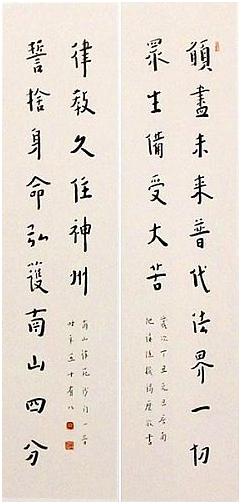 願盡未來普代法界一切
眾生備受大苦
歲次丁丑元旦
敬書
誓捨身命弘護南山四分
律教久住神州
南山律苑沙門一音
時年五十有八